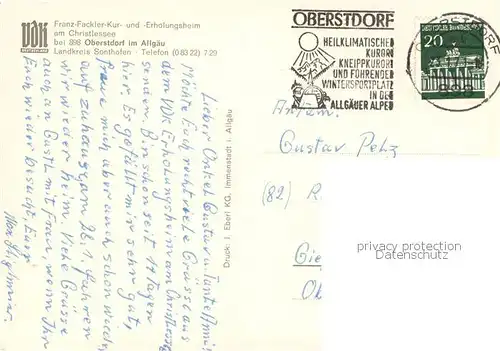 VdK
DEUTSCHLAND
Franz-Fackler-Kur- und -Erholungsheim
am Christlessee
bei 898 Oberstdorf im Allgäu
Landkreis Sonthofen · Telefon (08322) 729
OBERSTDORF
HEILKLIMATISCHER
KURORT
KNEIPPKURORT
UND FÜHRENDER
WINTERSPORTPLATZ
IN DEN
ALLGÄUER ALPEN
OBERSTDORF
898
20
Lieber Onkel Gustav u. Tante Anni!
Möchte Euch recht viele Grüsse aus
dem VDK Erholungsheim am Christlessee
senden. Bin schon seit 17 Tagen
hier. Es gefällt mir sehr gut,
freue mich aber auch schon wieder
auf zuhause, am 28.1. fahren
wir wieder heim. Viele Grüsse
auch an Gustl mit Frau, wenn Ihr
Euch wieder besucht. Euer
Max
Druck: J. Eberl KG, Immenstadt i. Allgäu
Gustav Pelz
(82) R
Gie
Ob
privacy protection
Datenschutz